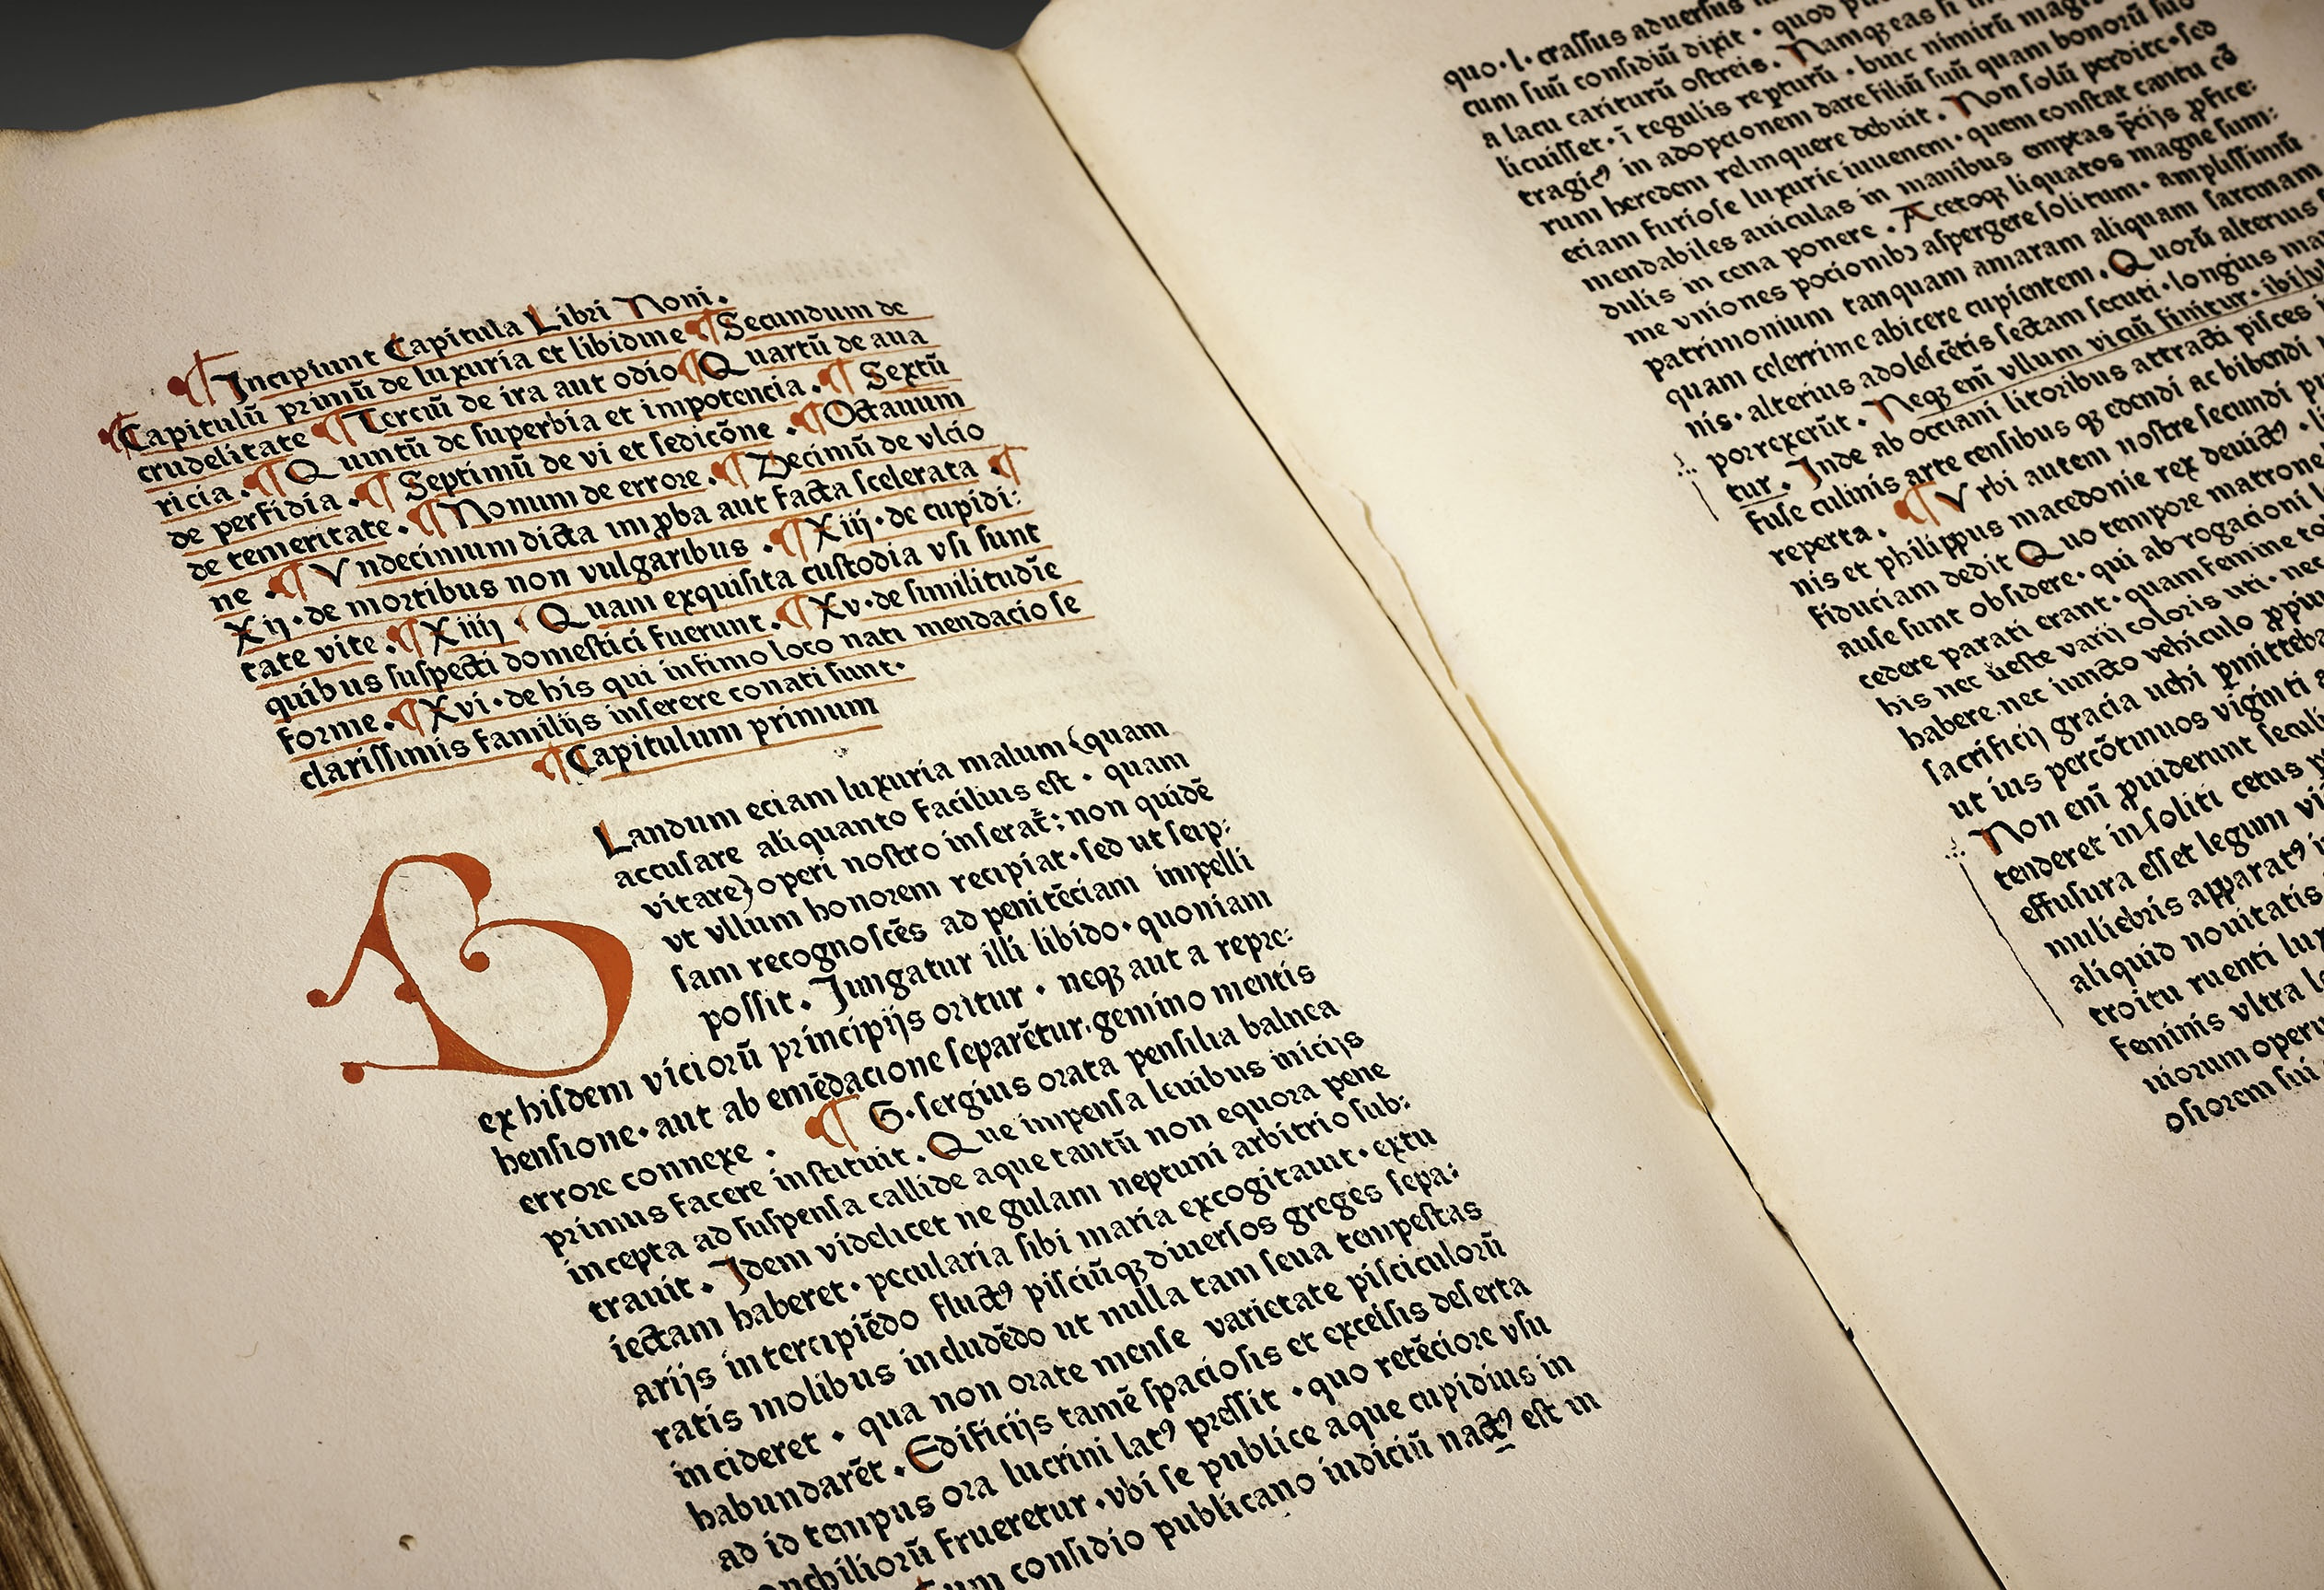 Incipiunt Capitula Libri Noni.
Capitulū primū de luxuria et libidine ¶ Secundum de
crudelitate ¶ Terciū de ira aut odio ¶ Quartū de aua
ricia. ¶ Quintū de superbia et impotencia. ¶ Sextū
de perfidia. ¶ Septimū de vi et sedicōne. ¶ Octauum
de temeritate. ¶ Nonum de errore. ¶ Decimū de vlcio
ne. ¶ Vndecimum dicta imꝓba aut facta scelerata ¶
Xij. de mortibus non vulgaribus. ¶ Xiij. de cupidi:
tate vite. ¶ Xiiij. Quam exquisita custodia vsi sunt
quibus suspecti domestici fuerunt. ¶ Xv. de similitudīe
forme. ¶ Xvi. de his qui infimo loco nati mendacio se
clarissimis familijs inserere conati sunt.
¶ Capitulum primum
B Landum eciam luxuria malum (quam
accusare aliquanto facilius est. quam
vitare) operi nostro inserat̄: non quidē
vt vllum honorem recipiat. sed ut seip:
sam recognoscēs ad penitēciam impelli
possit. Jungatur illi libido. quoniam
ex hisdem viciorū principijs oritur. neqꝫ aut a repre:
hensione. aut ab emēdacione separētur. gemino mentis
errore connexe. ¶ G. sergius orata pensilia balnea
primus facere instituit. Que impensa leuibus inicijs
incepta ad suspensa callide aque tantū non equora pene
trauit. Idem videlicet ne gulam neptuni arbitrio sub:
iectam haberet. peculiaria sibi maria excogitauit. extu
arijs intercipiēdo fluctꝰ pisciūqꝫ diuersos greges sepa:
ratis molibus includēdo ut nulla tam seua tempestas
incideret. qua non orate mense varietate pisciculorū
habundarēt. Edificijs tamē spaciosis et excelsis deserta
ad id tempus ora lucrini latꝰ pressit. quo retēciore vsu
conchiliorū frueretur. vbi se publice aque cupidius in
cum considio publicano iudiciū nactꝰ est in
quo. l. crassus aduersus
cum suū considiū dixit. quod
a lacu cariturū ostreis. Namqꝫ eas si
licuisset. ī tegulis repturū. huic nimirū
tragicꝰ in adopcionem dare filiū suū quam bonorū suo
rum heredem relinquere debuit. Non solū perdite. sed
eciam furiose luxurie iuuenem. quem constat cantu cō
mendabiles auiculas in manibus emptas p̄cijs ꝓfice:
dulis in cena ponere. Acetoqꝫ liquatos magne sum:
me vniones pocionibꝫ aspergere solitum. amplissimū
patrimonium tanquam amaram aliquam sarcinam
quam celerrime abicere cupientem. Quorū alterius
nis. alterius adolescētis sectam secuti. longius
porrexerūt. Neqꝫ enī vllum viciū finitur. ibi
tur. Inde ab occiani litoribus attracti pisces
fuse culinis arte censibus qꝫ edendi ac bibendi
reperta. ¶ Vrbi autem nostre secundi
nis et philippus macedonie rex deuictꝰ.
fiduciam dedit Quo tempore matrone
ause sunt obsidere. qui ab rogacioni
cedere parati erant. quam femine
his nec ueste varij coloris uti. nec
habere. nec iuncto vehiculo ꝓpius
sacrificij gracia uehi
ut ius percōtinuos viginti
Non enī ꝓuiderunt seculi
tenderet in soliti cetus
effusura esset legum
muliebris apparatꝰ
aliquid nouitatis
troitu ruenti
feminis vltra
uiorum operu
osiorem sui